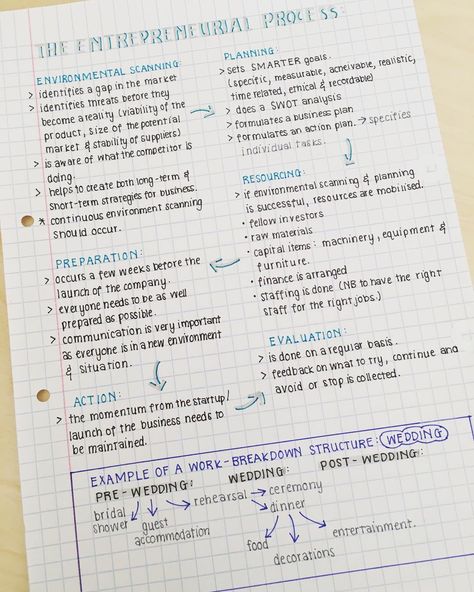 THE ENTREPRENEURIAL PROCESS:
ENVIRONMENTAL SCANNING:
> identifies a gap in the market
> identifies threats before they
become a reality (viability of the
product, size of the potential
market & stability of suppliers)
> is aware of what the competitor is
doing.
> helps to create both long-term &
short-term strategies for business.
* continuous environment scanning
should occur.
PLANNING:
> sets SMARTER goals.
(specific, measurable, achievable, realistic,
time related, ethical & recordable)
> does a SWOT analysis
> formulates a business plan
> formulates an action plan. → specifies
individual tasks.
RESOURCING:
> if environmental scanning & planning
is successful, resources are mobilised.
• fellow investors
• raw materials
• capital items: machinery, equipment &
furniture.
• finance is arranged
• staffing is done (NB to have the right
staff for the right jobs.)
PREPARATION:
> occurs a few weeks before the
launch of the company.
> everyone needs to be as well
prepared as possible.
> communication is very important
as everyone is in a new environment
& situation.
ACTION:
> the momentum from the startup/
launch of the business needs to
be maintained.
EVALUATION:
> is done on a regular basis.
> feedback on what to try, continue and
avoid or stop is collected.
EXAMPLE OF A WORK-BREAKDOWN STRUCTURE: WEDDING
PRE-WEDDING: WEDDING: POST-WEDDING:
bridal
shower
guest
accommodation
rehearsal → ceremony
dinner
food
decorations
entertainment.